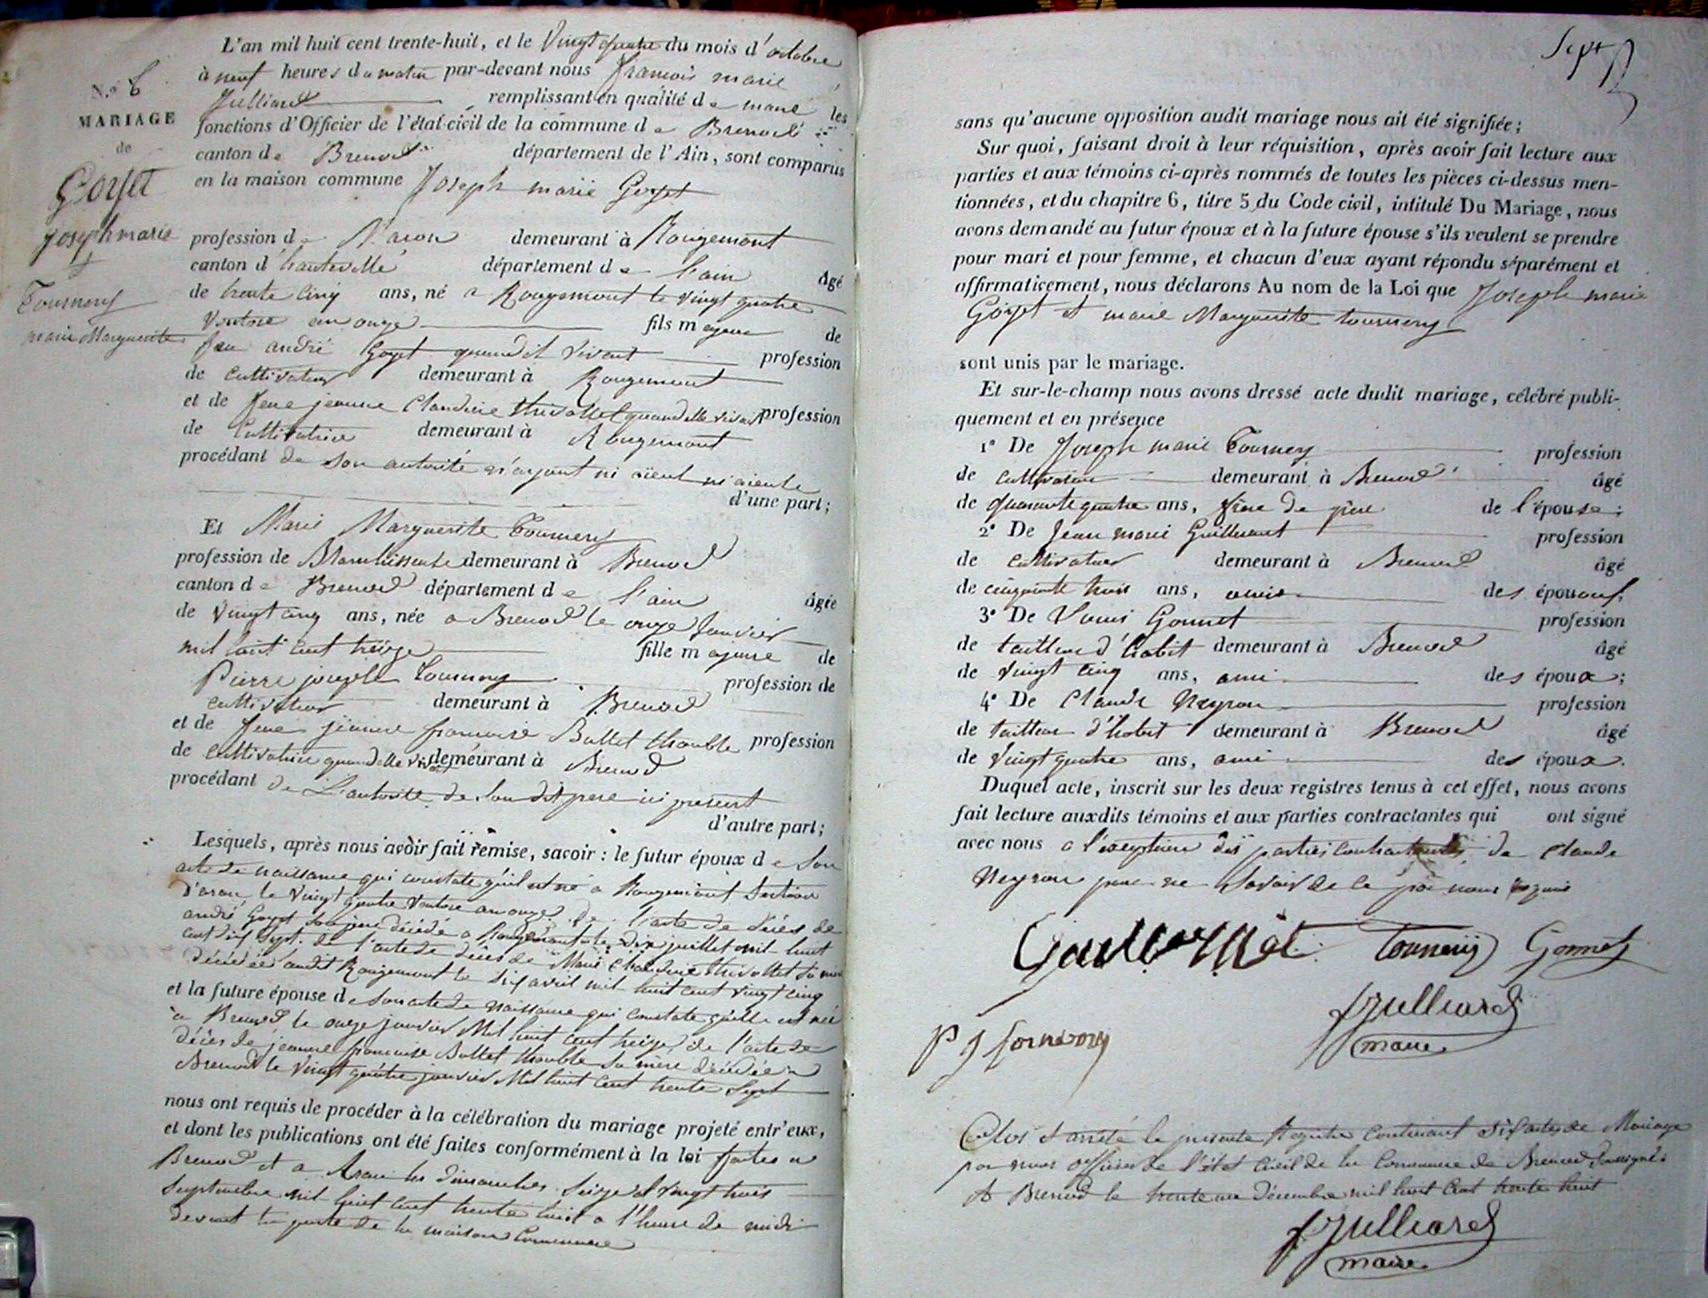 N.º 6
MARIAGE
de
Goyet
Joseph marie
&
Tournery
marie Marguerite
L'an mil huit cent trente-huit, et le Vingt quatre du mois d'octobre
à neuf heures du matin par-devant nous francois marie
Julliard remplissant en qualité de maire les
fonctions d'Officier de l'état-civil de la commune de Brenod
canton de Brenod département de l'Ain, sont comparus
en la maison commune Joseph marie Goyet
profession de demeurant à Rougemont
canton d'hauteville département de l'ain âgé
de trente cinq ans, né a Rougemont le vingt quatre
Ventose an onze fils majeur de
feu andré Goyet quand il vivait profession
de cultivateur demeurant à Rougemont
et de feue jeanne Claudine thivollet quand elle vivait profession
de Cultivatrice demeurant à Rougemont
procédant de son autorité n'ayant ni aieul ni aieule
d'une part;
Et Marie Marguerite Tournery
profession de Blanchisseuse demeurant à Brenod
canton de Brenod département de l'ain âgée
de vingt cinq ans, née a Brenod le onze Janvier
mil huit cent treize fille majeure de
Pierre joseph Tournery profession de
cultivateur demeurant à Brenod
et de feue jeanne francoise Ballet thouble profession
de cultivatrice quand elle vivait demeurant à Brenod
procédant de L'autorité de son dit pere ici present
d'autre part;
Lesquels, après nous avoir fait remise, savoir: le futur époux de son
acte de naissance qui constate qu'il est né a Rougemont Section
d'aran le vingt quatre Ventose an onze, de l'acte de décès de
andré Goyet son pere décédé a Rougemont le dix juillet mil huit
cent dix sept. de l'acte de décès de Marie Claudine thivollet sa mere
décédée audit Rougemont le six avril mil huit cent vingt cinq
et la future épouse de son acte de naissance qui constate qu'elle est née
a Brenod le onze janvier Mil huit cent treize de l'acte de
décès de jeanne francoise Ballet thouble sa mère décédée a
Brenod le vingt quatre janvier Mil huit cent trente sept
nous ont requis de procéder à la célébration du mariage projeté entr'eux,
et dont les publications ont été faites conformément à la loi faites a
Brenod et a Aran les dimanches seize et vingt trois
Septembre mil huit cent trente huit a l'heure de midi
devant la porte de la maison Commune
Sept
sans qu'aucune opposition audit mariage nous ait été signifiée;
Sur quoi, faisant droit à leur réquisition, après avoir fait lecture aux
parties et aux témoins ci-après nommés de toutes les pièces ci-dessus men-
tionnées, et du chapitre 6, titre 5 du Code civil, intitulé Du Mariage, nous
avons demandé au futur époux et à la future épouse s'ils veulent se prendre
pour mari et pour femme, et chacun d'eux ayant répondu séparément et
affirmativement, nous déclarons Au nom de la Loi que Joseph marie
Goyet et marie Marguerite tournery
sont unis par le mariage.
Et sur-le-champ nous avons dressé acte dudit mariage, célébré publi-
quement et en présence
1º De Joseph marie Tournery profession
de cultivateur demeurant à Brenod âgé
de quarante quatre ans, frère de père de l'épouse;
2º De Jean marie Guillermet profession
de cultivateur demeurant à Brenod âgé
de cinquante trois ans, amis des épouux,
3º De Louis Gonnet profession
de tailleur d'habit demeurant à Brenod âgé
de vingt cinq ans, ami des époux;
4º De Claude Neyron profession
de tailleur d'habit demeurant à Brenod âgé
de vingt quatre ans, ami des époux.
Duquel acte, inscrit sur les deux registres tenus à cet effet, nous avons
fait lecture auxdits témoins et aux parties contractantes qui ont signé
avec nous a l'exception des parties contractantes, de Claude
Neyron pour ne savoir de ce par nous requis
Guillermet Tournery Gonnet
fJulliard
maire
P J tornery
Clos et arreté le present Registre contenant six actes de Mariage
par nous officier de l'état civil de la Commune de Brenod Soussigné
A Brenod le trente un Décembre mil huit cent trente huit
fJulliard
maire